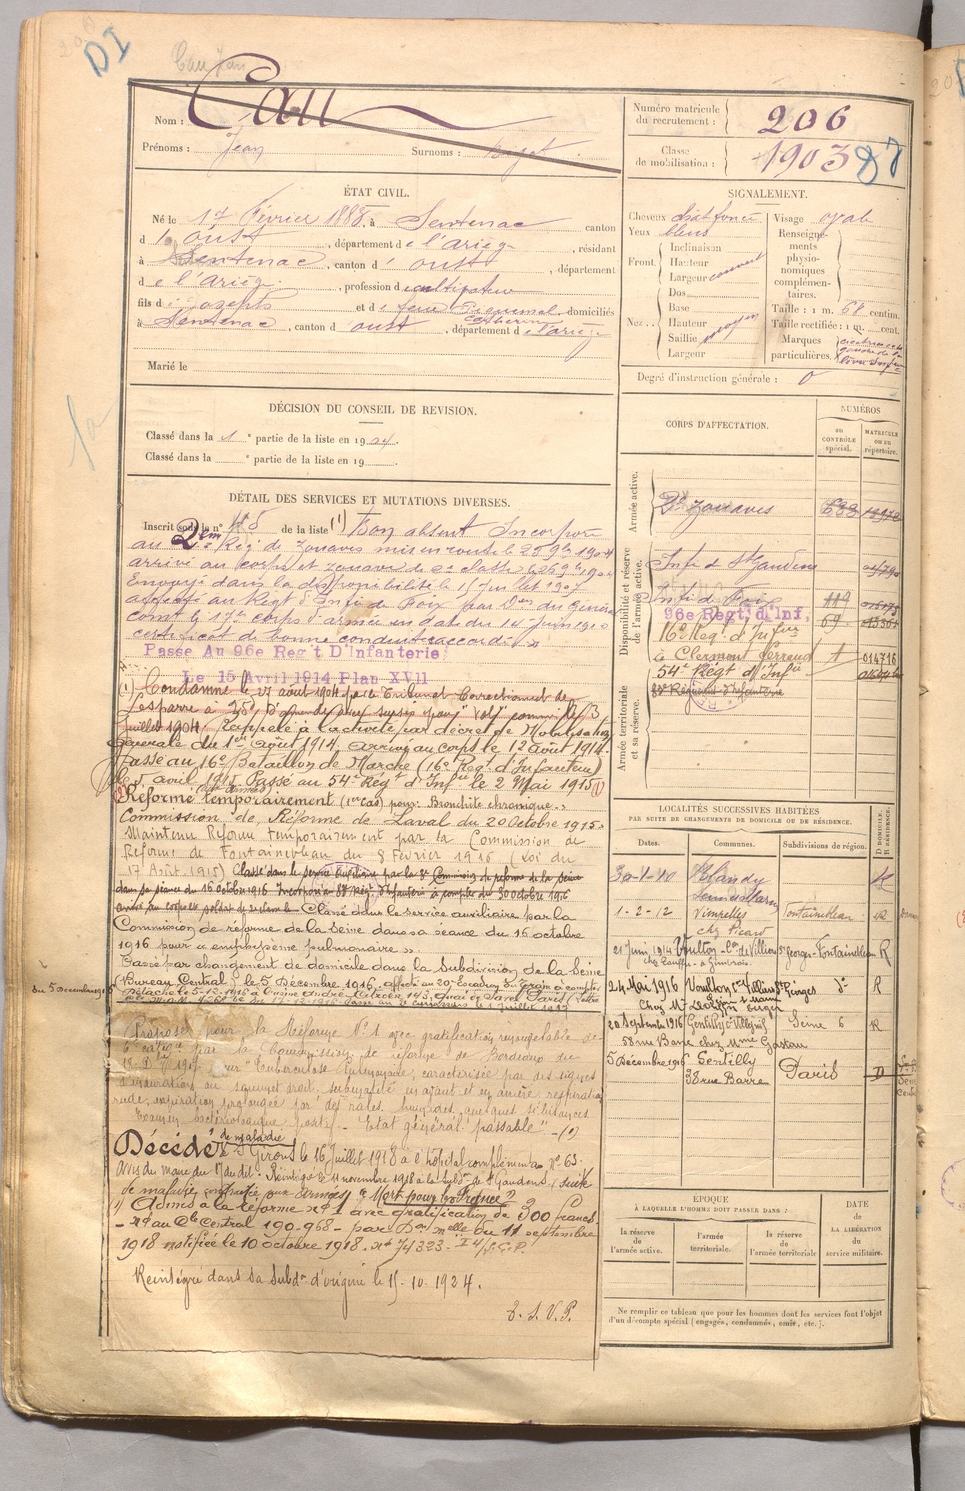 DI
Cau Jean
Nom : Cau
Prénoms : Jean Surnoms :
Numéro matricule du recrutement : 206
Classe de mobilisation : 1903
ÉTAT CIVIL.
Né le 17 Février 1888, à Sentenac canton
d'oust, département de l'Ariège, résidant
à Sentenac, canton d'oust, département
de l'Ariège, profession de cultivateur
fils de Joseph et de feu Piquemal Catherine, domiciliés
à Sentenac, canton d'oust, département de l'ariège
Marié le
SIGNALEMENT.
Cheveux chat foncé
Yeux bleus
Front. Inclinaison
Hauteur
Largeur couvert
Nez. Dos
Base
Hauteur
Saillie moyen
Largeur
Visage oval
Renseignements physionomiques complémentaires.
Taille : 1 m. 68 centim.
Taille rectifiée : 1 m. cent.
Marques particulières.
Degré d'instruction générale : 0
DÉCISION DU CONSEIL DE REVISION.
Classé dans la 1e partie de la liste en 1904.
Classé dans la e partie de la liste en 19
DÉTAIL DES SERVICES ET MUTATIONS DIVERSES.
Inscrit sous le n° 45 de la liste (1) Bon absent Incorporé
au 2em Reg de Zouaves mis en route le 25 9bre 1904
arrivé au corps et zouave de 2e classe le 26 9bre 1904
Envoyé dans la disponibilité le 15 Juillet 1907
affecté au Régt d'Infie de Foix par Don du général
comt le 17e corps d'armée en date du 14 Juin 1910
certificat de bonne conduite accordé
Passé Au 96e Reg't D'Infanterie
Le 15 Avril 1914 Plan XVII
(1) Condamné le 27 août 1904 par le Tribunal Correctionnel de
Lesparre à 25f d'amende avec sursis pour "vol" commis le 3
Juillet 1904. Rappelé à l'activité par décret de Mobilisation
générale du 1er Août 1914, arrivé au corps le 12 août 1914.
Passé au 16e Bataillon de Marche (16e Régt d'Infanterie)
le 5 avril 1915 Passé au 54e Régt d'Infie le 2 Mai 1915
Réformé temporairement (1er Cas) pour: Bronchite chronique.
Commission de Réforme de Laval du 20 Octobre 1915.
Maintenu Réformé temporairement par la Commission de
Réforme de Fontainebleau du 8 Février 1916 (Loi du
17 Août 1915) Classé dans le service auxiliaire par la 3e Commission de réforme de la Seine
dans sa séance du 16 octobre 1916 Incorporé au Régt d'Infanterie à compter du 30 octobre 1916
arrivé au corps et soldat de 2e classe le Classé dans le service auxiliaire par la
Commission de réforme de la Seine dans sa séance du 16 octobre
1916 pour « emphysème pulmonaire »
Passé par changement de domicile dans la Subdivision de la Seine
(Bureau Central) le 5 Décembre 1916, affecté au 20e Escadron du train à compter
du 5 Décembre 1916
Détaché le 5-12-1916 à l'Usine André Citroën 143, Quai de Javel Paris
Proposé pour la Réforme N° 1 avec gratification renouvelable de
6e catégie par la Commission de réforme de Bordeaux du
pour "Tuberculose Pulmonaire, caractérisée par des signes
d'induration au sommet droit, submatité en avant et en arrière, respiration
rude, expiration prolongée par des rales humides, quelques sibilances
Examen bactériologique positif - Etat général passable" - (1)
Décédé de maladie à St Girons le 16 Juillet 1918 à l'hôpital complémentre n° 63.
Avis du maire du 17 du dit. Réintégré le 11 novembre 1918 à la subdon de St Gaudens (suite
de maladie contractée aux armées) "Mort pour la France"
(1) Admis à la réforme n° 1 avec gratification de 300 francs
- n° au Ct Central 190-968 - par Don Melle du 11 septembre
1918 notifiée le 10 octobre 1918. n° J4323. I4/S.G.P.
Réintégré dans sa Subdon d'origine le 15-10-1924.
T. S. V. P.
CORPS D'AFFECTATION.
NUMÉROS
au CONTRÔLE spécial.
MATRICULE ou au répertoire.
Armée active.
2e Zouaves
Disponibilité et réserve de l'armée active.
Infie de St Gaudens
Infie de Foix 119
96e Regt d'Inf. 69
16e Régt d'Infrie
à Clermont Ferrand 1 014716
54e Régt d'Infie
Armée territoriale et sa réserve.
LOCALITÉS SUCCESSIVES HABITÉES
PAR SUITE DE CHANGEMENTS DE DOMICILE OU DE RÉSIDENCE.
Dates. Communes. Subdivisions de région. D DOMICILE. R RÉSIDENCE.
30-1-10 Blandy Seine et Marne R
1-2-12 Vimpelles Fontainebleau R
chez Picard
21 Juin 1914 Voulton - Con de Villiers St Georges - Fontainebleau R
24 Mai 1916 Voulton, con Villiers St Georges do R
20 Septembre 1916 Gentilly - Villejuif Seine 6 R
58 rue Barre chez Mme Gastau
5 Décembre 1916 Gentilly Paris D
38 rue Barre
ÉPOQUE
À LAQUELLE L'HOMME DOIT PASSER DANS :
la réserve de l'armée active.
l'armée territoriale.
la réserve de l'armée territoriale
DATE de LA LIBÉRATION du service militaire.
Ne remplir ce tableau que pour les hommes dont les services font l'objet
d'un décompte spécial (engagés, condamnés, omis, etc.).